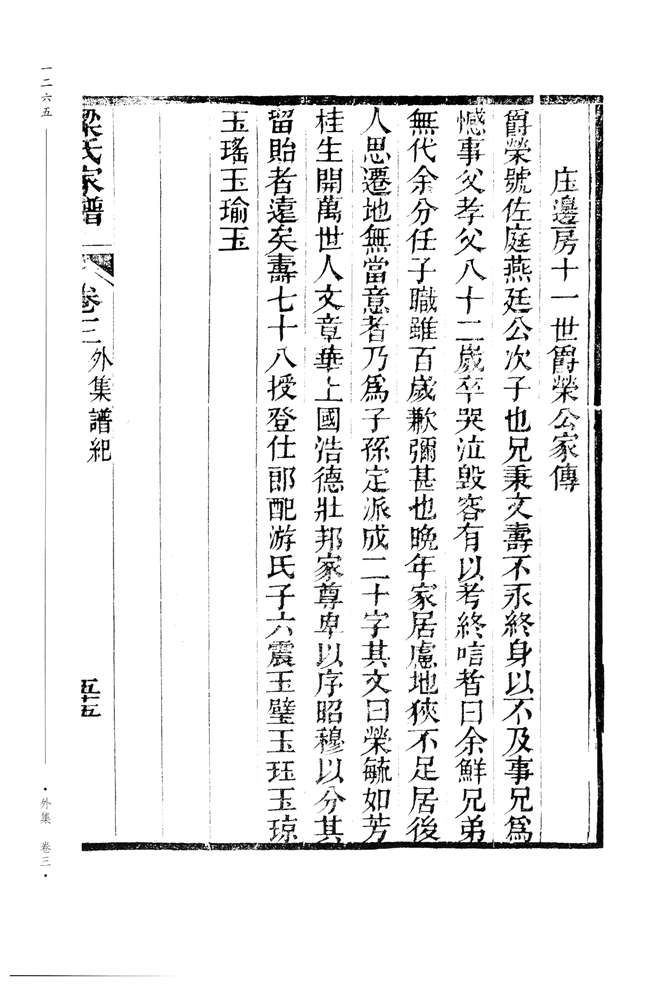 庄邊房十一世爵榮公家傳
爵榮號佐庭燕廷公次子也兄秉文壽不永終身以不及事兄為
憾事父孝父八十二歲卒哭泣毀容有以考終唁者曰余鮮兄弟
無代余分任子職雖百歲歉彌甚也晚年家居慮地狹不足居後
人思遷地無當意者乃為子孫定派成二十字其文曰榮毓如芳
桂生開萬世人文章華上國浩德壯邦家尊卑以序昭穆以分其
留貽者遠矣壽七十八授登仕郎配游氏子六震玉璧玉珏玉琼
玉瑤玉瑜玉
梁氏家譜 卷三 外集譜紀 五十五
一二六五
·外集 卷三·